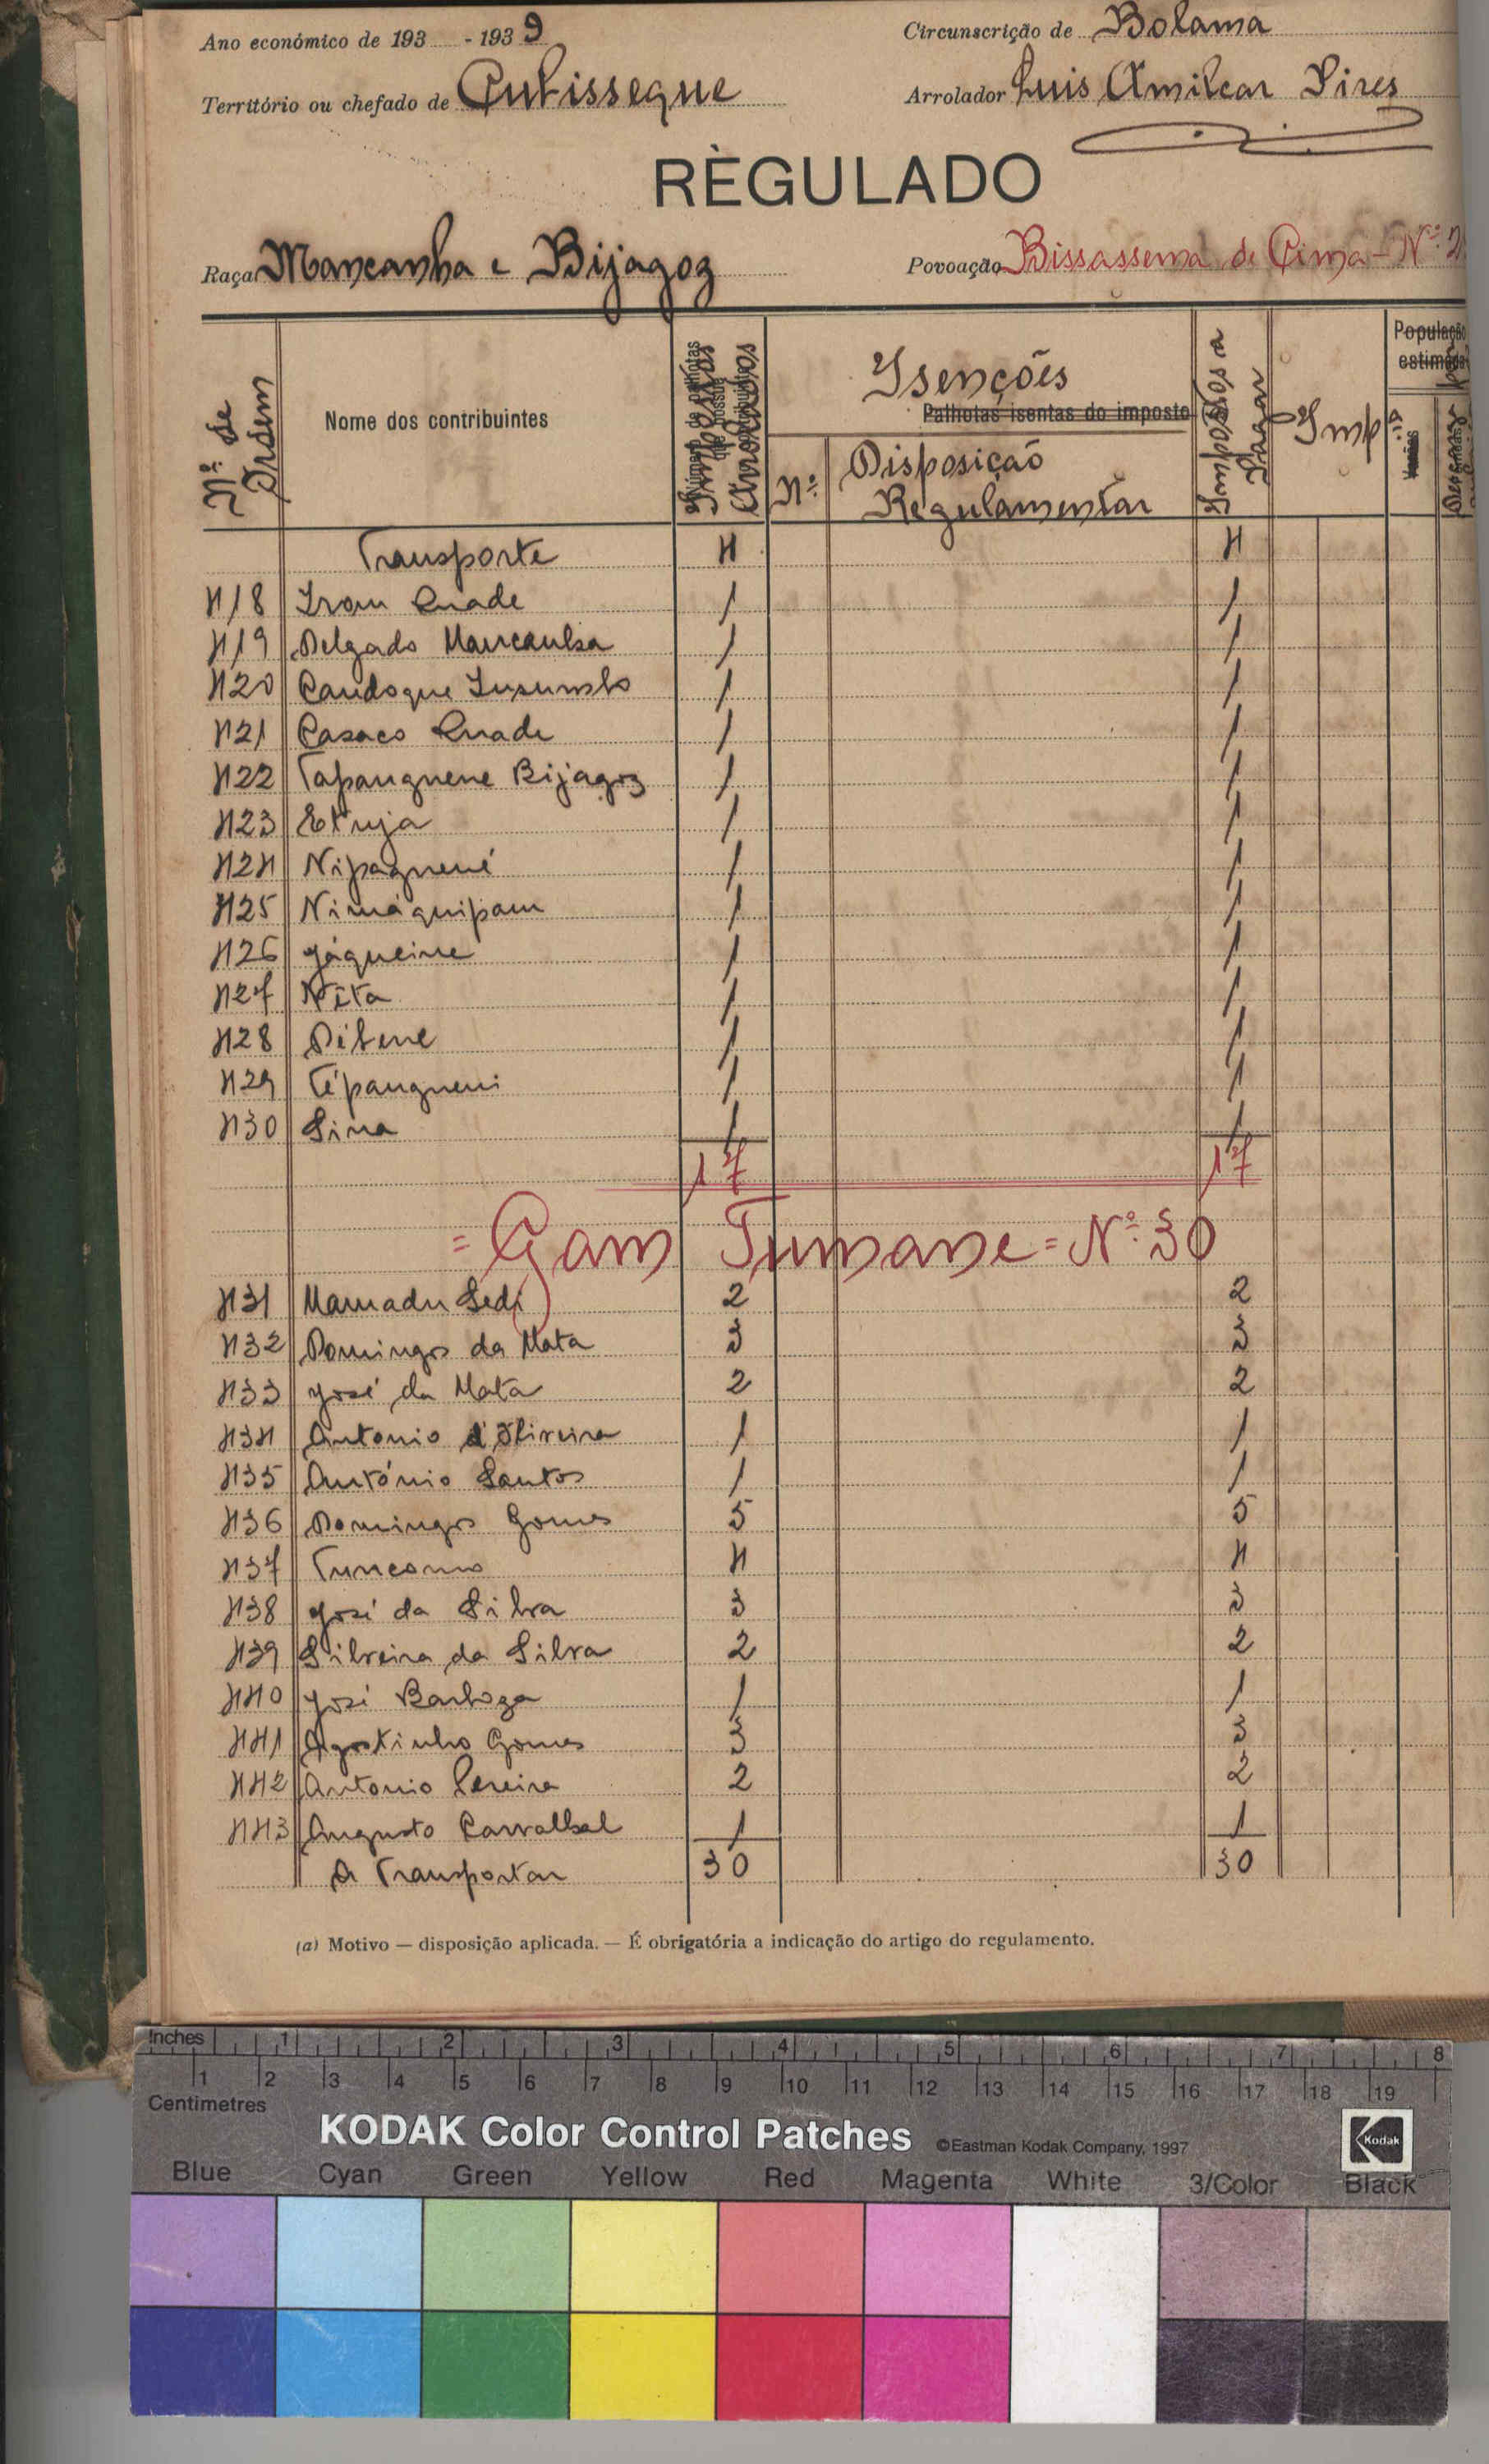 Ano económico de 193 - 1939
Circunscrição de Bolama
Território ou chefado de Cubisseque
Arrolador Luis Amilcar Pires
RÈGULADO
Raça Mancanha e Bijagoz
Povoação Bissassema de Cima - Nº 2
Nº de Ordem
Nome dos contribuintes
Impostos Arrolados
Isenções
Palhotas isentas do imposto
Nº
Disposição Regulamentar
Impostos a Pagar
Imp
População estimada
Transporte 4 4
418 Irom Quade 1 1
419 Delgado Mancanha 1 1
420 Candoque Insumbo 1 1
421 Casaco Quade 1 1
422 Tapanguene Bijagoz 1 1
423 Etuja 1 1
424 Nipaguené 1 1
425 Nimáquipam 1 1
426 Jáqueine 1 1
427 Nita 1 1
428 Dibene 1 1
429 Tépangueni 1 1
430 Sina 1 1
17 17
= Gam Tumane = Nº 30
431 Mamadu Sedi 2 2
432 Domingos da Mata 3 3
433 José da Mata 2 2
434 Antonio d'Oliveira 1 1
435 António Santos 1 1
436 Domingos Gomes 5 5
437 Tunconno 4 4
438 José da Silva 3 3
439 Silveira da Silva 2 2
440 José Barboza 1 1
441 Agostinho Gomes 3 3
442 Antonio Pereira 2 2
443 Augusto Carvalhal 1 1
A Transportar 30 30
(a) Motivo — disposição aplicada. — É obrigatória a indicação do artigo do regulamento.
Inches 1 2 3 4 5 6 7 8
1 2 3 4 5 6 7 8 9 10 11 12 13 14 15 16 17 18 19
Centimetres
KODAK Color Control Patches ©Eastman Kodak Company, 1997 Kodak
Blue Cyan Green Yellow Red Magenta White 3/Color Black